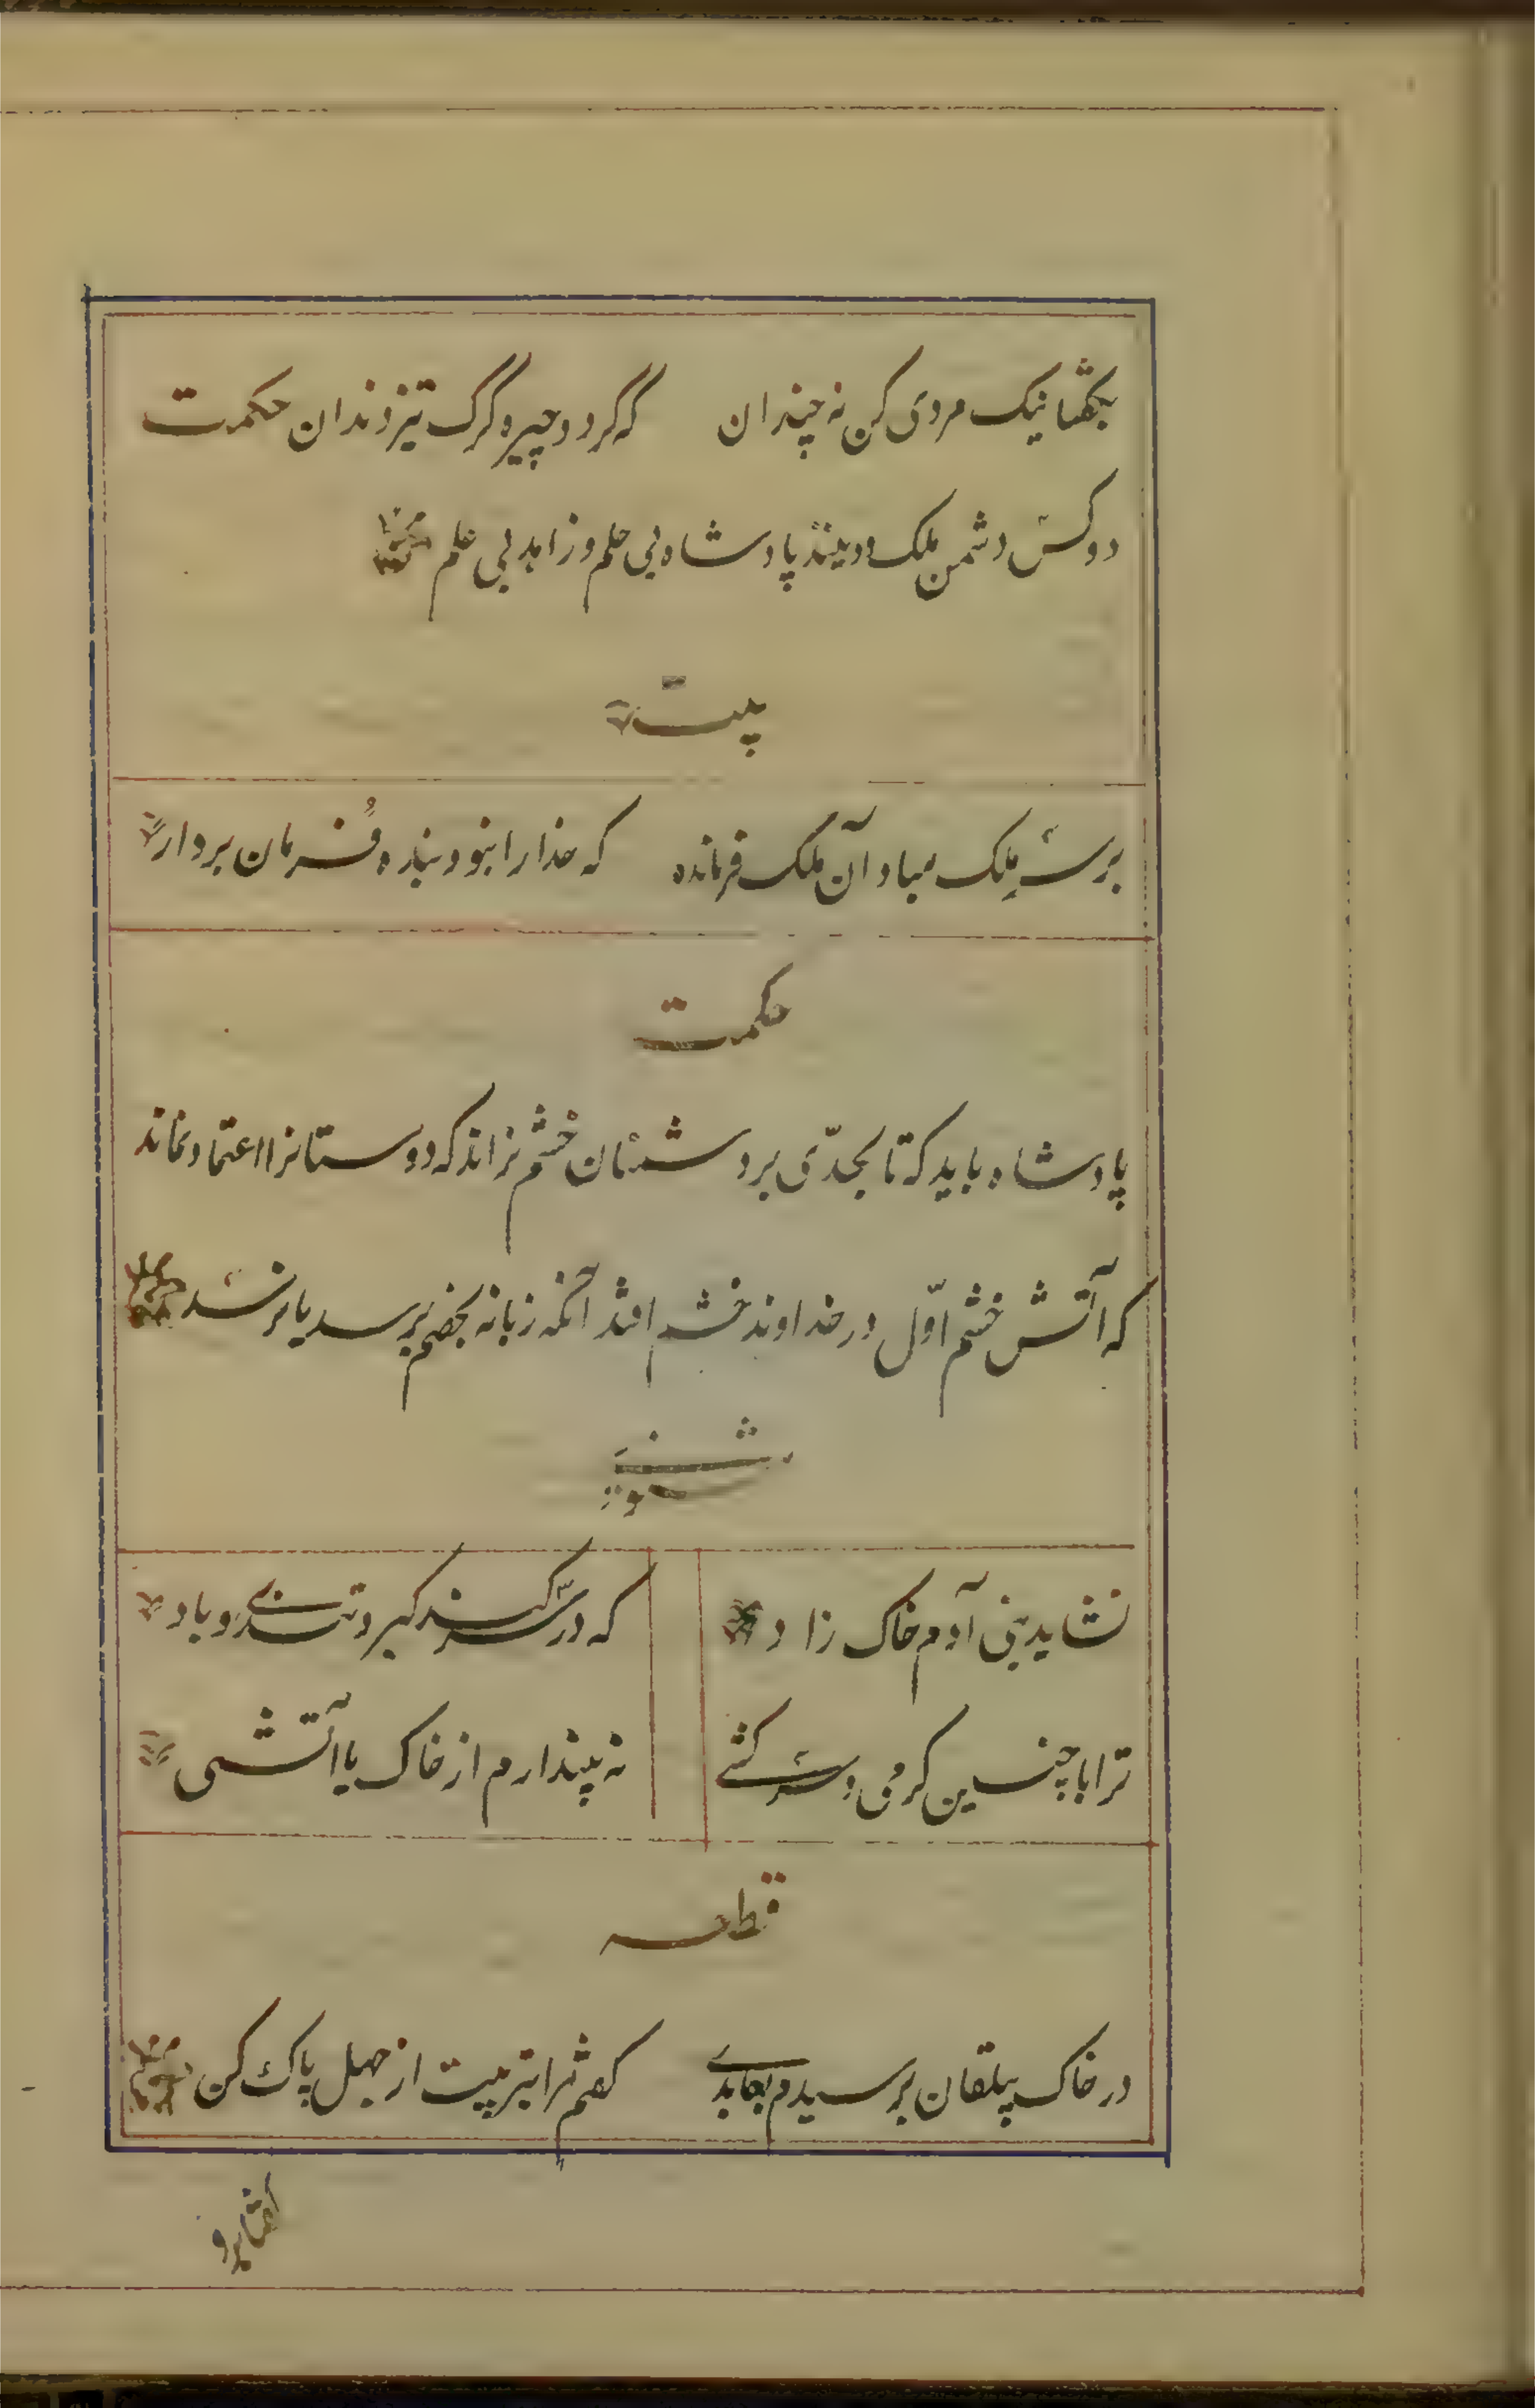 بگفتا نیک مردی کن نه چندان که گردد چیره گرگ تیز دندان حکمت
دو کس دشمن ملک و دینند پادشاه بی حلم و زاهد بی علم
بیت
بر سر ملک مباد آن ملک فرمانده که خدا را نبود بنده فرمان بردار
حکمت
پادشاه باید که تا بحدّی بر دشمنان خشم نراند که دوستانرا اعتماد نماند
که آتش خشم اوّل در خداوند خشم افتد آنگه زبانه بخصم برسد یا نرسد
مثنوی
نشاید بنی آدم خاک زاد که در سر کند کبر و تندی و باد
ترا با چنین گرمی و سرکشی نه پندارم از خاک یا آتشی
قطعه
در خاک بیلقان برسیدم بعابدی گفتم مرا بتربیت از جهل پاک کن
گفتا برو